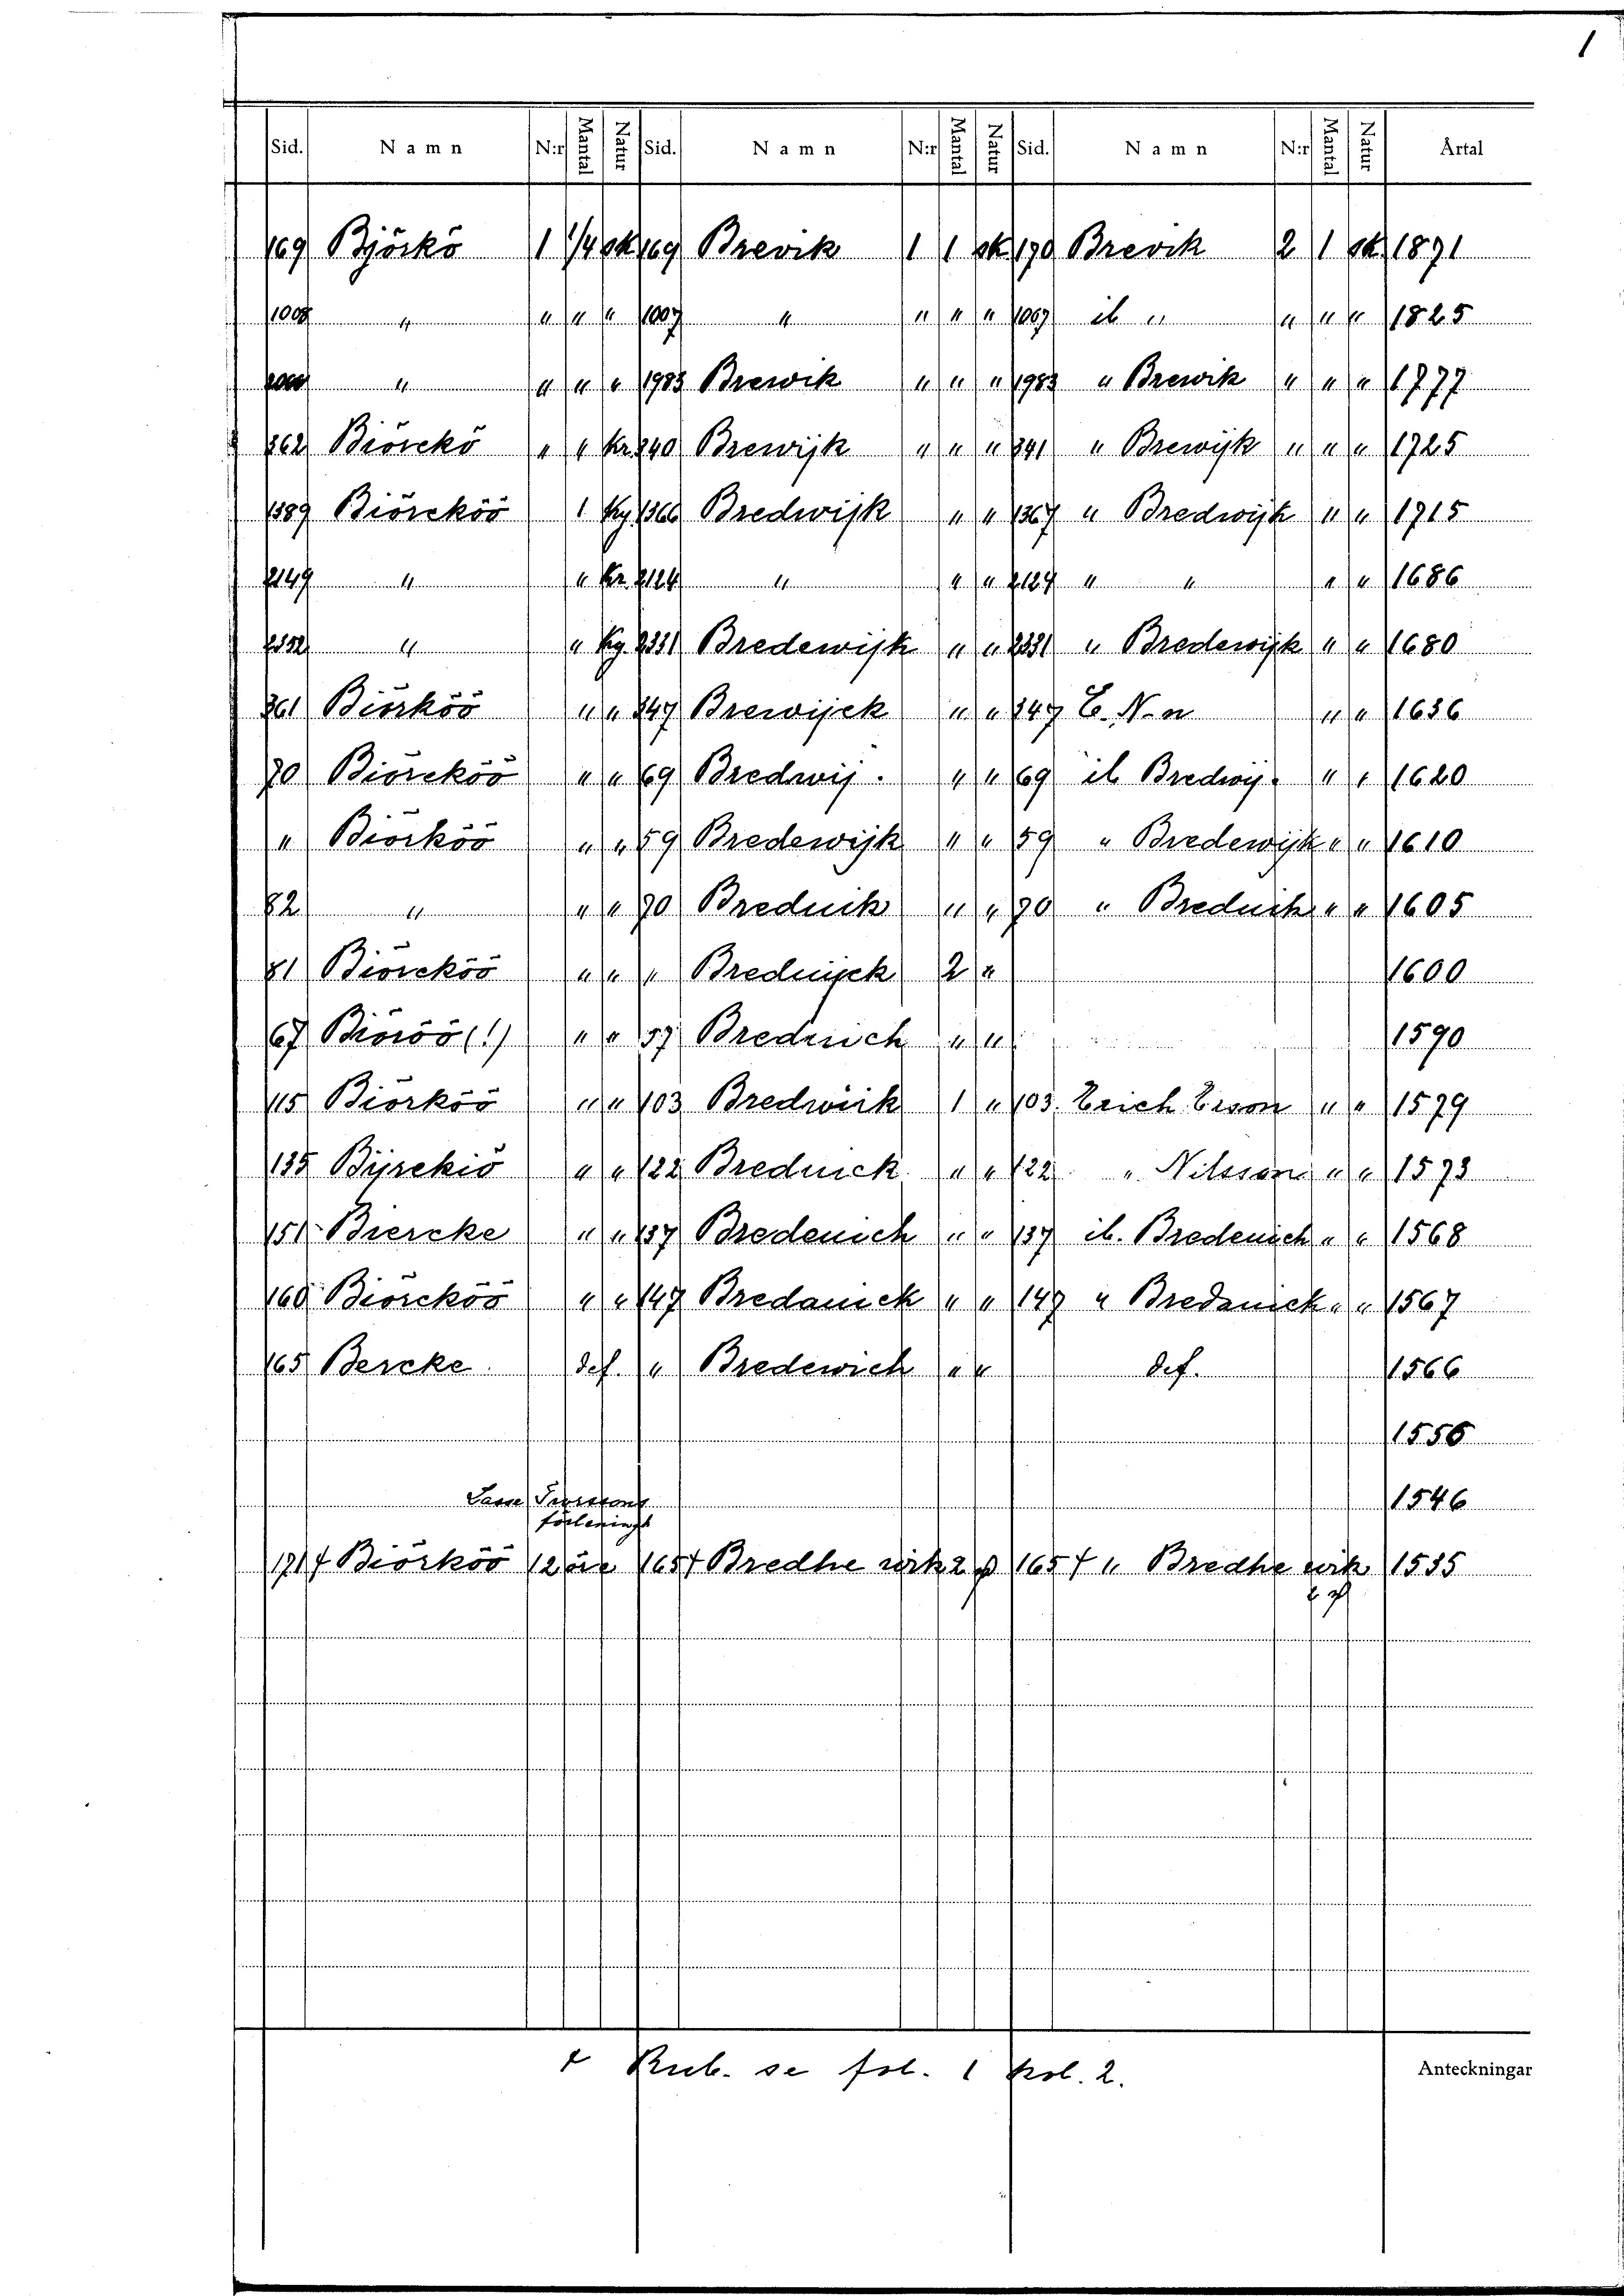 1
Sid. Namn N:r Mantal Natur Sid. Namn N:r Mantal Natur Sid. Namn N:r Mantal Natur Årtal
169 Björkö 1 1/4 sk 169 Brevik 1 1 sk 170 Brevik 2 1 sk 1871
1008 " " " " 1007 " " " " 1007 ib " " " " 1825
" " " " 1983 Brewik " " " 1983 " Brewik " " " 1777
862 Biörckö " " kr 840 Brewijk " " " 841 " Brewijk " " " 1725
1389 Biörcköö 1 kg 1366 Bredwijk " " 1367 " Bredwijk " " 1715
2149 " " kr. 2124 " " " 2124 " " " " 1686
2352 " " kg. 2331 Bredewijk " " 2331 " Bredewijk " " 1680
361 Biörköö " " 347 Brewijck " " 347 E. N-n " " 1636
70 Biörcköö " " 69 Bredwij. " " 69 ib Bredwij. " " 1620
" Biörköö " " 59 Bredewijk " " 59 " Bredewijk " " 1610
82 " " " 70 Breduik " " 70 " Breduik " " 1605
81 Biörcköö " " " Breduijck 2 " 1600
67 Biöröö (!) " " 57 Breduich " " 1590
115 Biörköö " " 103 Bredwiik 1 " 103. Erich Erson " " 1579
135 Bijrckiö " " 122 Breduick " " 122 " Nilsson " " 1573
151 Biercke " " 137 Bredeuich " " 137 ib. Bredeuich " " 1568
160 Biörcköö " " 147 Bredauick " " 147 " Bredauick " " 1567
165 Bercke def. " Bredewich " " def. 1566
1556
Lasse förlening 1546
171 + Biörköö 12 öre 165 + Bredhe wik 2 165 + " Bredhe wik 1535
2
+ Rub. se fol. 1 kol. 2.
Anteckningar